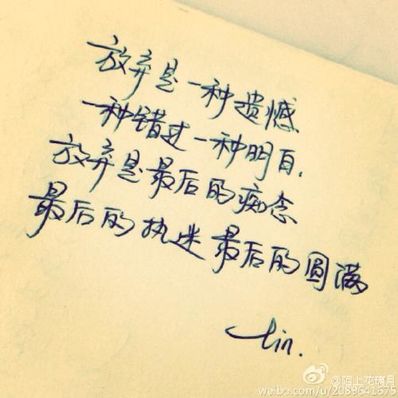 放弃是一种遗憾
一种错过一种明白.
放弃是最后的痴念
最后的执迷最后的圆满
lin.
@陌上花璃月
weibo.com/u/2089641375